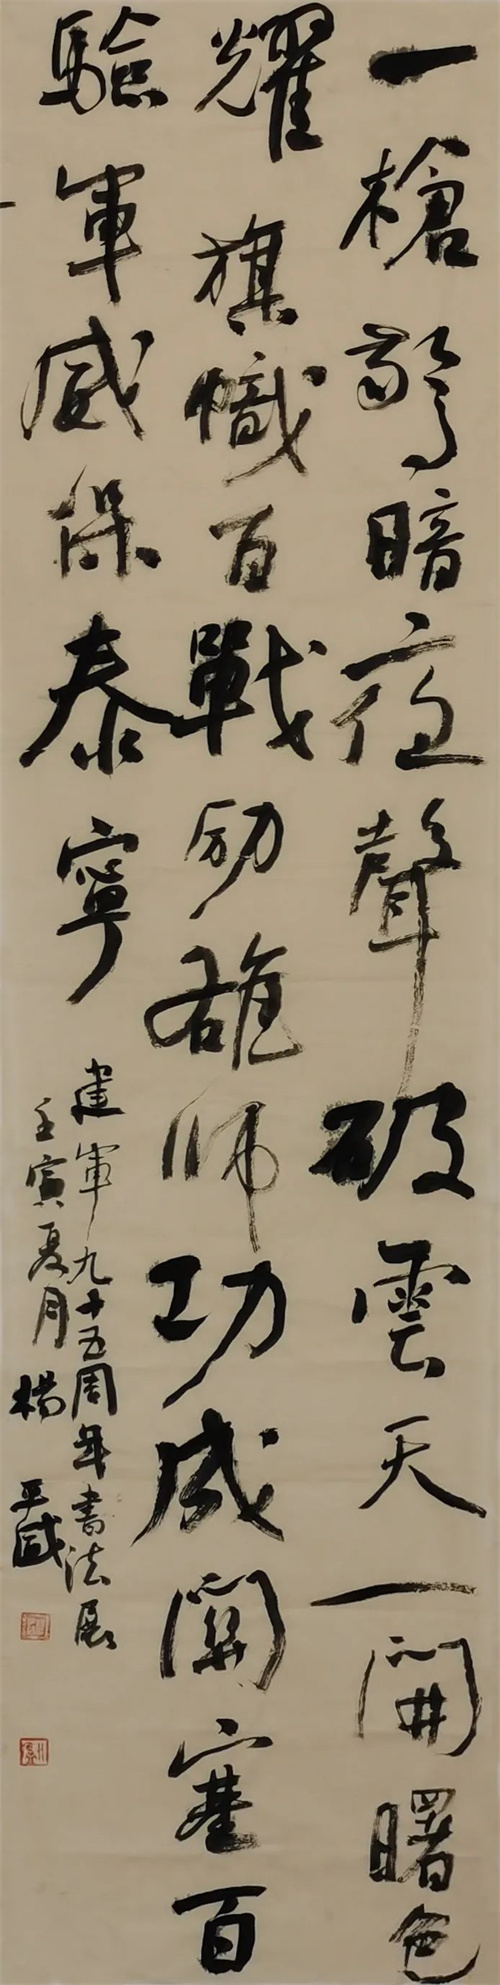 一槍驚暗夜聲破雲天一開曙色
耀旗幟百戰勵雄師功成關塞百
驗軍威保泰寧
建軍九十五周年書法展
壬寅夏月楊平